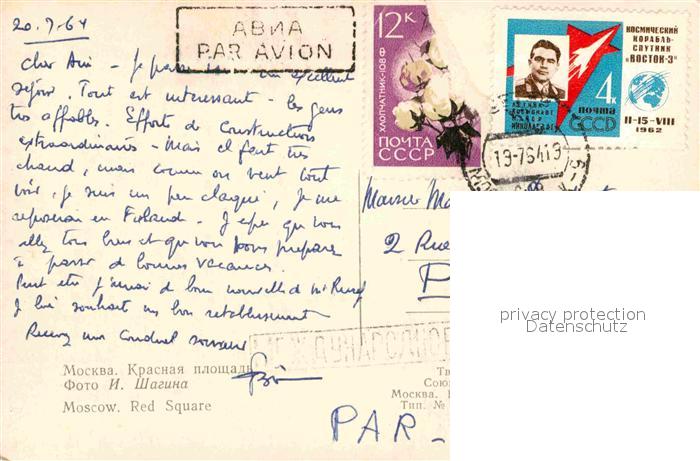 20.7.64
АВИА
PAR AVION
Cher Ami - Je passe un excellent
séjour. Tout est intéressant - les gens
très affables. Efforts de constructions
extraordinaires - Mais il fait très
chaud, mais comme on veut tout
voir, je suis un peu claqué, je me
reposerai en Finlande. J'espère que vous
allez tous bien et que vous vous préparez
à passer de bonnes vacances.
Peut être j'aurai de bonnes nouvelles de
Je lui souhaite un bon rétablissement
Recevez mon cordial souvenir
12К
ХЛОПЧАТНИК-108 Ф
ПОЧТА
СССР
КОСМИЧЕСКИЙ
КОРАБЛЬ-
СПУТНИК
"ВОСТОК-3"
11-15-VIII
1962
4к
почта
СССР
ЛЕТЧИК-
КОСМОНАВТ
НИКОЛАЕВ
19-7 64 19
2 Rue
P
МЕЖДУНАРОДНОЕ
Москва. Красная площадь
Фото И. Шагина
Moscow. Red Square
Тв
Союз
Москва.
Тип. №
PAR-
privacy protection
Datenschutz